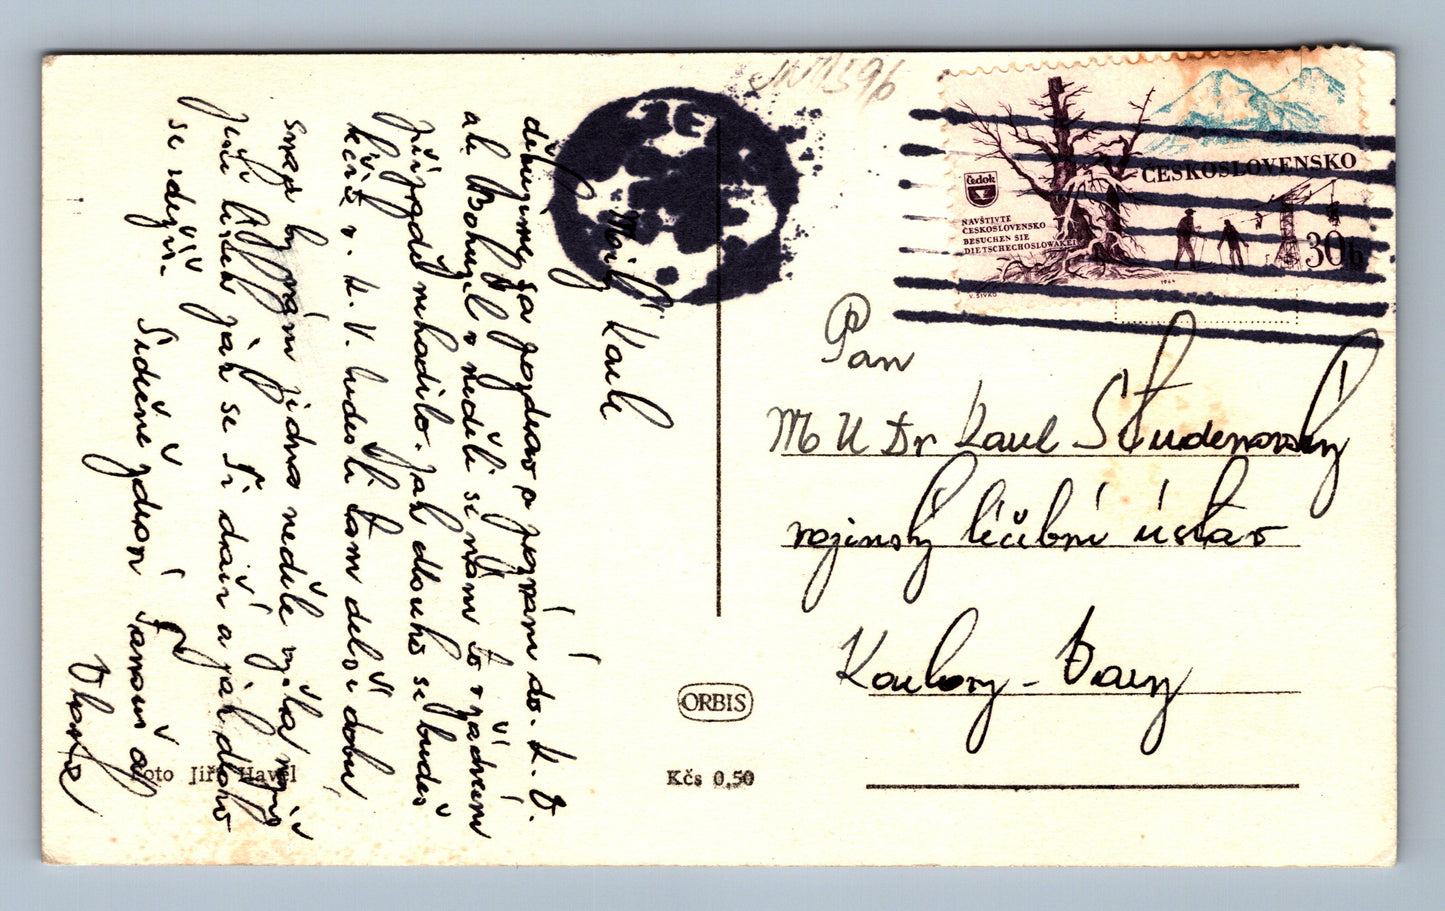 Milý Karle
děkujeme za pozdrav a pozvání do K. V.
ale Bohužel v neděli se nám to v žádném
případě nehodilo. jak dlouho se budeš
léčit v K. V. budeš-li tam delší dobu
snad by nám jedna neděle vyšla napiš
jestli lístek jak se Ti daří a jak dlouho
se zdržíš. Srdečně zdraví
Vlasta
Foto Jiří Havel
ORBIS
Kčs 0,50
ČESKOSLOVENSKO
čedok
NAVŠTIVTE
ČESKOSLOVENSKO
BESUCHEN SIE
DIE TSCHECHOSLOWAKEI
30h
V. SIVKO
1964
Pan
MUDr Karel Studenovský
vojenský léčební ústav
Karlovy-Vary